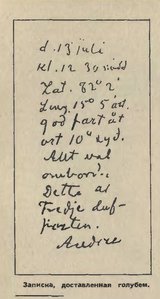 d. 13 juli
kl. 12 30 midd
Lat. 82° 2'
Long. 15° 5 ost.
god fart åt
ost 10° syd.
Allt väl
ombord.
Detta är
Tredje duf-
posten.
Andrée
Записка, доставленная голубем.